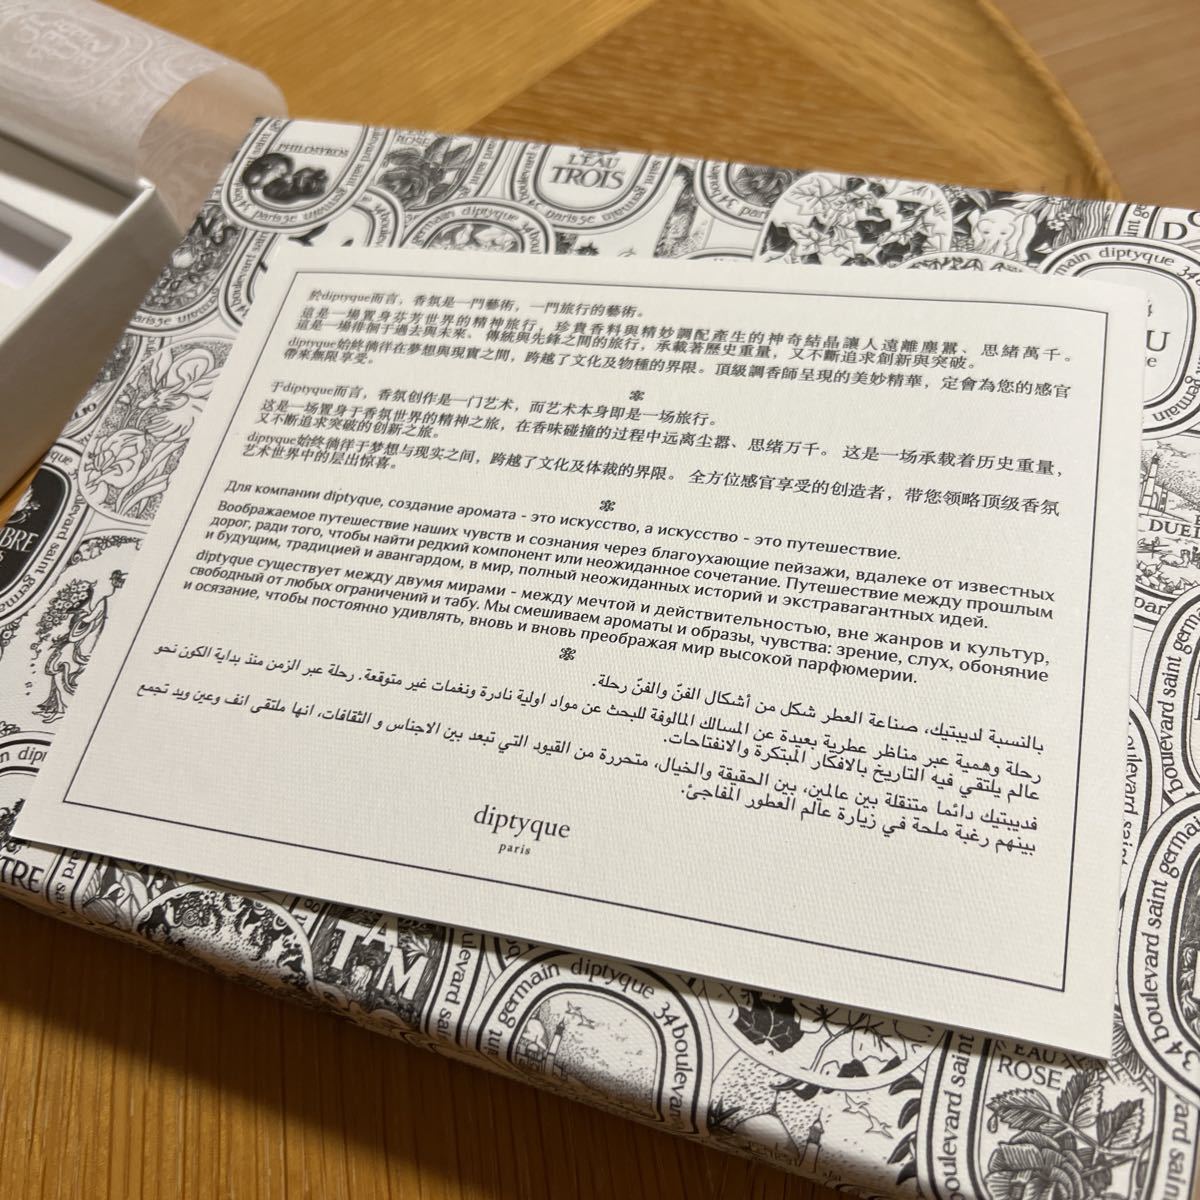 PHILOSYKOS
EAU ROSE
L'EAU TROIS
boulevard saint germain
paris5e
於diptyque而言，香氛是一門藝術，一門旅行的藝術。
這是一場置身芬芳世界的精神旅行，珍貴香料與精妙調配產生的神奇結晶讓人遠離塵囂、思緒萬千。
這是一場徘徊于過去與未來。傳統與先鋒之間的旅行，承載著歷史重量，又不斷追求創新與突破。
diptyque始終徜徉在夢想與現實之間，跨越了文化及物種的界限。頂級調香師呈現的美妙精華，定會為您的感官
帶來無限享受。
于diptyque而言，香氛创作是一门艺术，而艺术本身即是一场旅行。
这是一场置身于香氛世界的精神之旅，在香味碰撞的过程中远离尘嚣、思绪万千。 这是一场承载着历史重量，
又不断追求突破的创新之旅。
diptyque始终徜徉于梦想与现实之间，跨越了文化及体裁的界限。 全方位感官享受的创造者，带您领略顶级香氛
艺术世界中的层出惊喜。
Для компании diptyque, создание аромата - это искусство, а искусство - это путешествие.
Воображаемое путешествие наших чувств и сознания через благоухающие пейзажи, вдалеке от известных
дорог, ради того, чтобы найти редкий компонент или неожиданное сочетание. Путешествие между прошлым
и будущим, традицией и авангардом, в мир, полный неожиданных историй и экстравагантных идей.
diptyque существует между двумя мирами - между мечтой и действительностью, вне жанров и культур,
свободный от любых ограничений и табу. Мы смешиваем ароматы и образы, чувства: зрение, слух, обоняние
и осязание, чтобы постоянно удивлять, вновь и вновь преображая мир высокой парфюмерии.
بالنسبة لديبتيك، صناعة العطر شكل من أشكال الفنّ والفنّ رحلة.
رحلة وهمية عبر مناظر عطرية بعيدة عن المسالك المالوفة للبحث عن مواد اولية نادرة ونغمات غير متوقعة. رحلة عبر الزمن منذ بداية الكون نحو
عالم يلتقي فيه التاريخ بالافكار المبتكرة والانفتاحات.
فديبتيك دائما متنقلة بين عالمين، بين الحقيقة والخيال، متحررة من القيود التي تبعد بين الاجناس و الثقافات، انها ملتقى انف وعين ويد تجمع
بينهم رغبة ملحة في زيارة عالم العطور المفاجئ.
diptyque
paris
TAM
germain diptyque 34 boulevard
L'EAU ROSE
34 boulevard saint germain